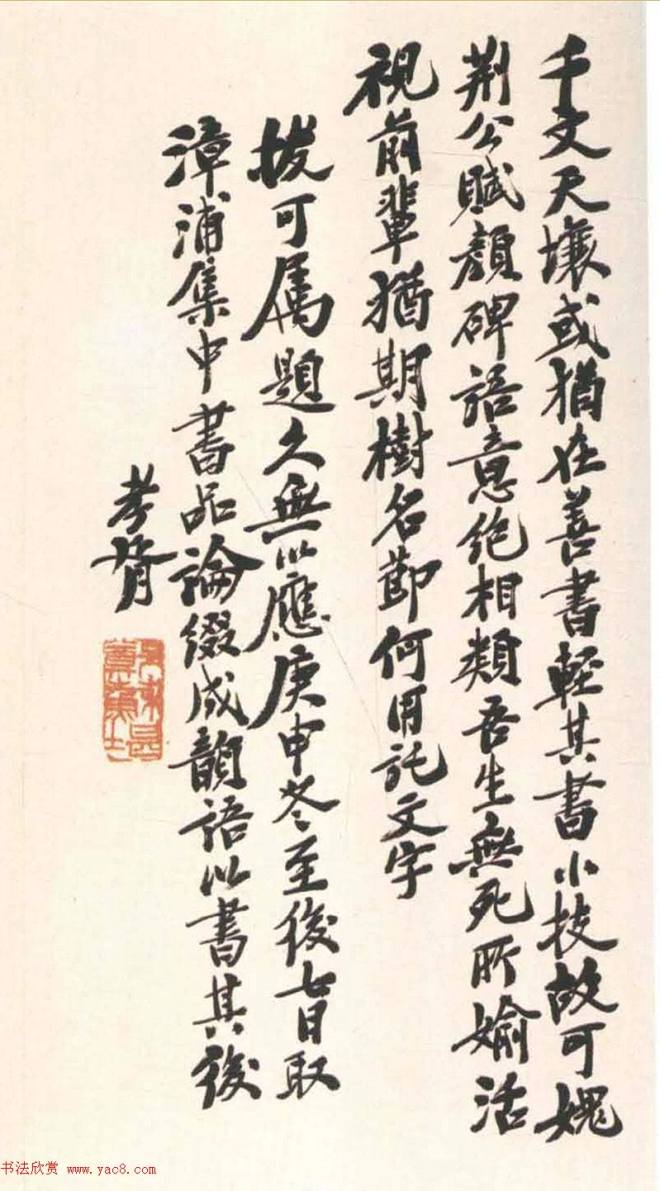 千文天壤或猶在善書輕其書小技故可媿
荆公賦顏碑語意絶相類吾生無死所媮活
視前輩猶期樹名節何用託文字
拔可属題久無以應庚申冬至後七日取
漳浦集中書品論綴成韻語以書其後
孝胥
书法欣赏 www.yac8.com